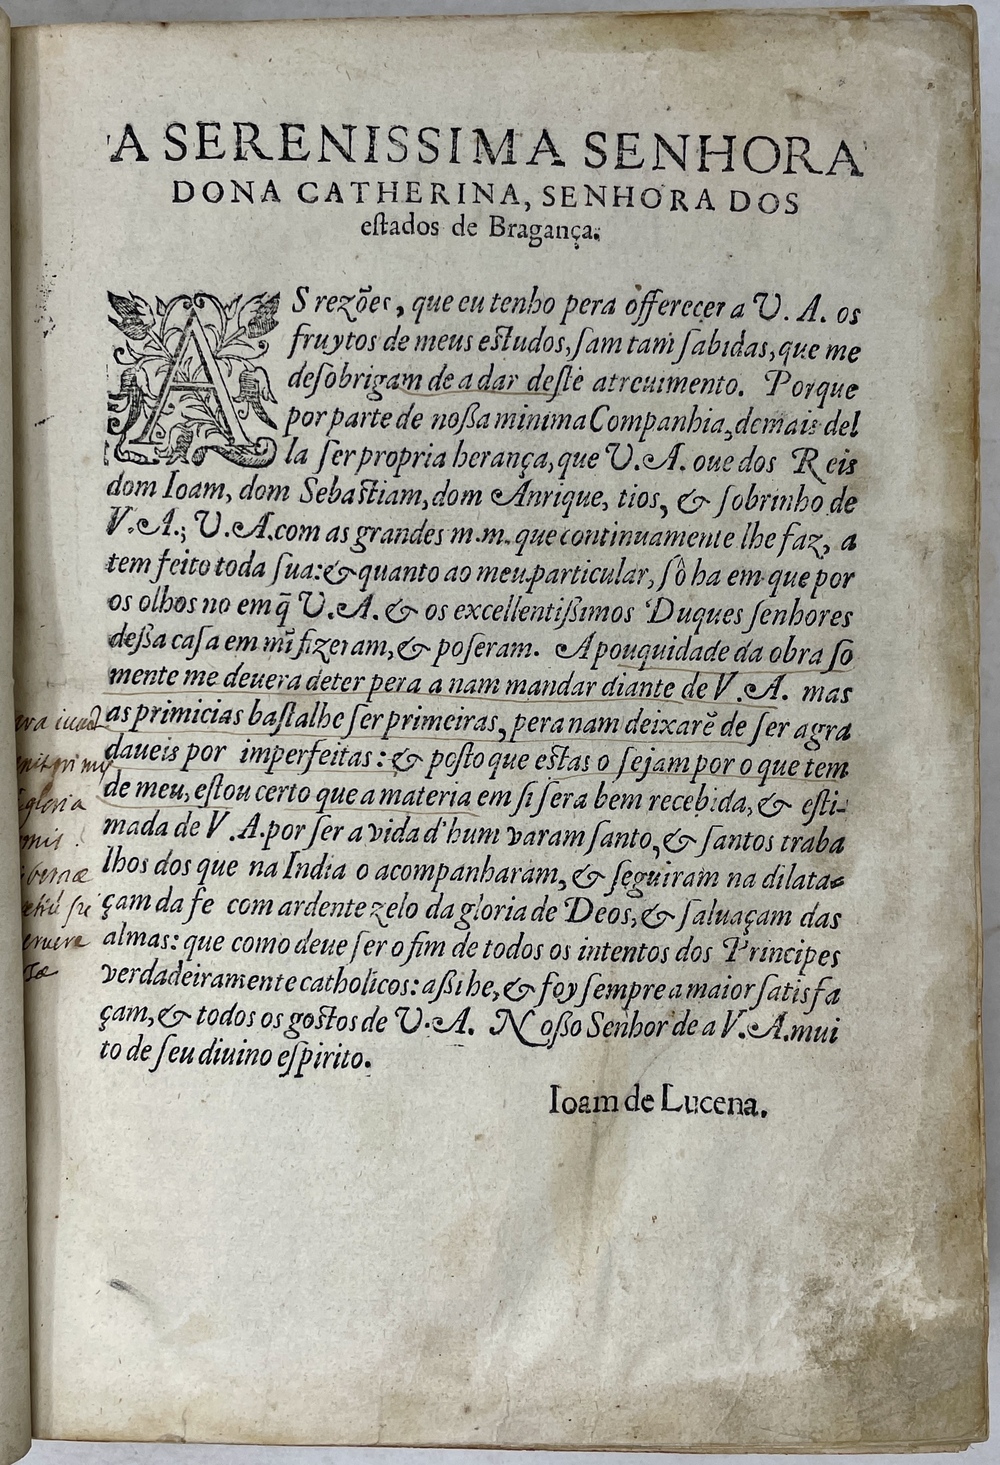 A SERENISSIMA SENHORA
DONA CATHERINA, SENHORA DOS
eſtados de Bragança.
AS rezões, que eu tenho pera offerecer a V. A. os
fruytos de meus eſtudos, ſam tam ſabidas, que me
deſobrigam de a dar deſte atreuimento. Porque
por parte de noſſa minima Companhia, demais del
la ſer propria herança, que V. A. oue dos Reis
dom Ioam, dom Sebaſtiam, dom Anrique, tios, & ſobrinho de
V. A.; V. A. com as grandes m.m. que continuamente lhe faz, a
tem feito toda ſua: & quanto ao meu particular, ſô ha em que por
os olhos no em q̃ V. A. & os excellentiſſimos Duques ſenhores
deſſa caſa em mĩ fizeram, & poſeram. A pouquidade da obra ſo
mente me deuera deter pera a nam mandar diante de V. A. mas
as primicias baſtalhe ſer primeiras, pera nam deixarẽ de ſer agra
daueis por imperfeitas: & poſto que eſtas o ſejam por o que tem
de meu, eſtou certo que a materia em ſi ſera bem recebida, & eſti-
mada de V. A. por ſer a vida d'hum varam ſanto, & ſantos traba
lhos dos que na India o acompanharam, & ſeguiram na dilata-
çam da fe com ardente zelo da gloria de Deos, & ſaluaçam das
almas: que como deue ſer o fim de todos os intentos dos Principes
verdadeiramente catholicos: aſſi he, & foy ſempre a maior ſatisfa
çam, & todos os goſtos de V. A. Noſſo Senhor de a V. A. mui
to de ſeu diuino eſpirito.
Ioam de Lucena.
gloria